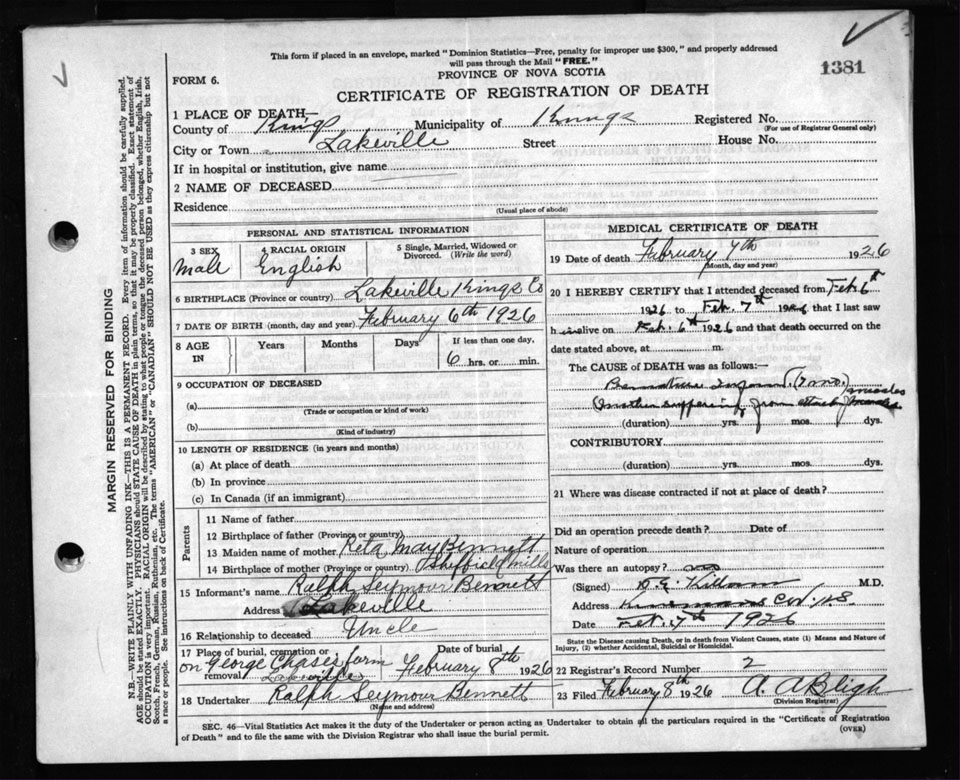 This form if placed in an envelope, marked "Dominion Statistics—Free, penalty for improper use $300," and properly addressed
will pass through the Mail "FREE."
1381
FORM 6.
PROVINCE OF NOVA SCOTIA
CERTIFICATE OF REGISTRATION OF DEATH
MARGIN RESERVED FOR BINDING
N.B.—WRITE PLAINLY WITH UNFADING INK—THIS IS A PERMANENT RECORD. Every item of information should be carefully supplied.
AGE should be stated EXACTLY. PHYSICIANS should STATE CAUSE OF DEATH in plain terms, so that it may be properly classified. Exact statement of
OCCUPATION is very important. RACIAL ORIGIN will be described by stating to what people or tongue the deceased person belonged, whether English, Irish,
Scotch, French, German, Russian, Ruthenian, etc. The terms "AMERICAN" or "CANADIAN" SHOULD NOT BE USED as they express citizenship but not
a race or people. See instructions on back of Certificate.
1 PLACE OF DEATH—
County of Kings Municipality of Kings Registered No.
(For use of Registrar General only)
City or Town Lakeville Street House No.
If in hospital or institution, give name
2 NAME OF DECEASED
Residence
(Usual place of abode)
PERSONAL AND STATISTICAL INFORMATION
3 SEX 4 RACIAL ORIGIN 5 Single, Married, Widowed or
Divorced. (Write the word)
Male English
6 BIRTHPLACE (Province or country) Lakeville Kings Co
7 DATE OF BIRTH (month, day and year) February 6th 1926
8 AGE IN Years Months Days If less than one day,
6 hrs. or min.
9 OCCUPATION OF DECEASED
(a)
(Trade or occupation or kind of work)
(b)
(Kind of industry)
10 LENGTH OF RESIDENCE (in years and months)
(a) At place of death
(b) In province
(c) In Canada (if an immigrant)
Parents
11 Name of father
12 Birthplace of father (Province or country)
13 Maiden name of mother Reta May Bennett
14 Birthplace of mother (Province or country) Sheffield Mills
15 Informant's name Ralph Seymour Bennett
Address Lakeville
16 Relationship to deceased Uncle
17 Place of burial, cremation or removal Date of burial
on George Chases farm Lakeville February 8th 1926
18 Undertaker Ralph Seymour Bennett
(Name and address)
MEDICAL CERTIFICATE OF DEATH
19 Date of death February 7th 1926
(Month, day and year)
20 I HEREBY CERTIFY that I attended deceased from Feb. 6th
1926 to Feb. 7th 1926 that I last saw
h im alive on Feb. 6th 1926 and that death occurred on
date stated above, at m.
The CAUSE of DEATH was as follows:—
Premature Infant (7 mo.)
(mother suffering from attack measles
(duration) yrs. mos. dys.
CONTRIBUTORY
(duration) yrs. mos. dys.
21 Where was disease contracted if not at place of death?
Did an operation precede death? Date of
Nature of operation
Was there an autopsy? no
(Signed) M.D.
Address N.S.
Date Feb. 7th 1926
State the Disease causing Death, or in death from Violent Causes, state (1) Means and Nature of
Injury, (2) whether Accidental, Suicidal or Homicidal.
22 Registrar's Record Number 2
23 Filed February 8th 1926 A. A Bligh
(Division Registrar)
SEC. 46—Vital Statistics Act makes it the duty of the Undertaker or person acting as Undertaker to obtain all the particulars required in the "Certificate of Registration
of Death" and to file the same with the Division Registrar who shall issue the burial permit.
(OVER)